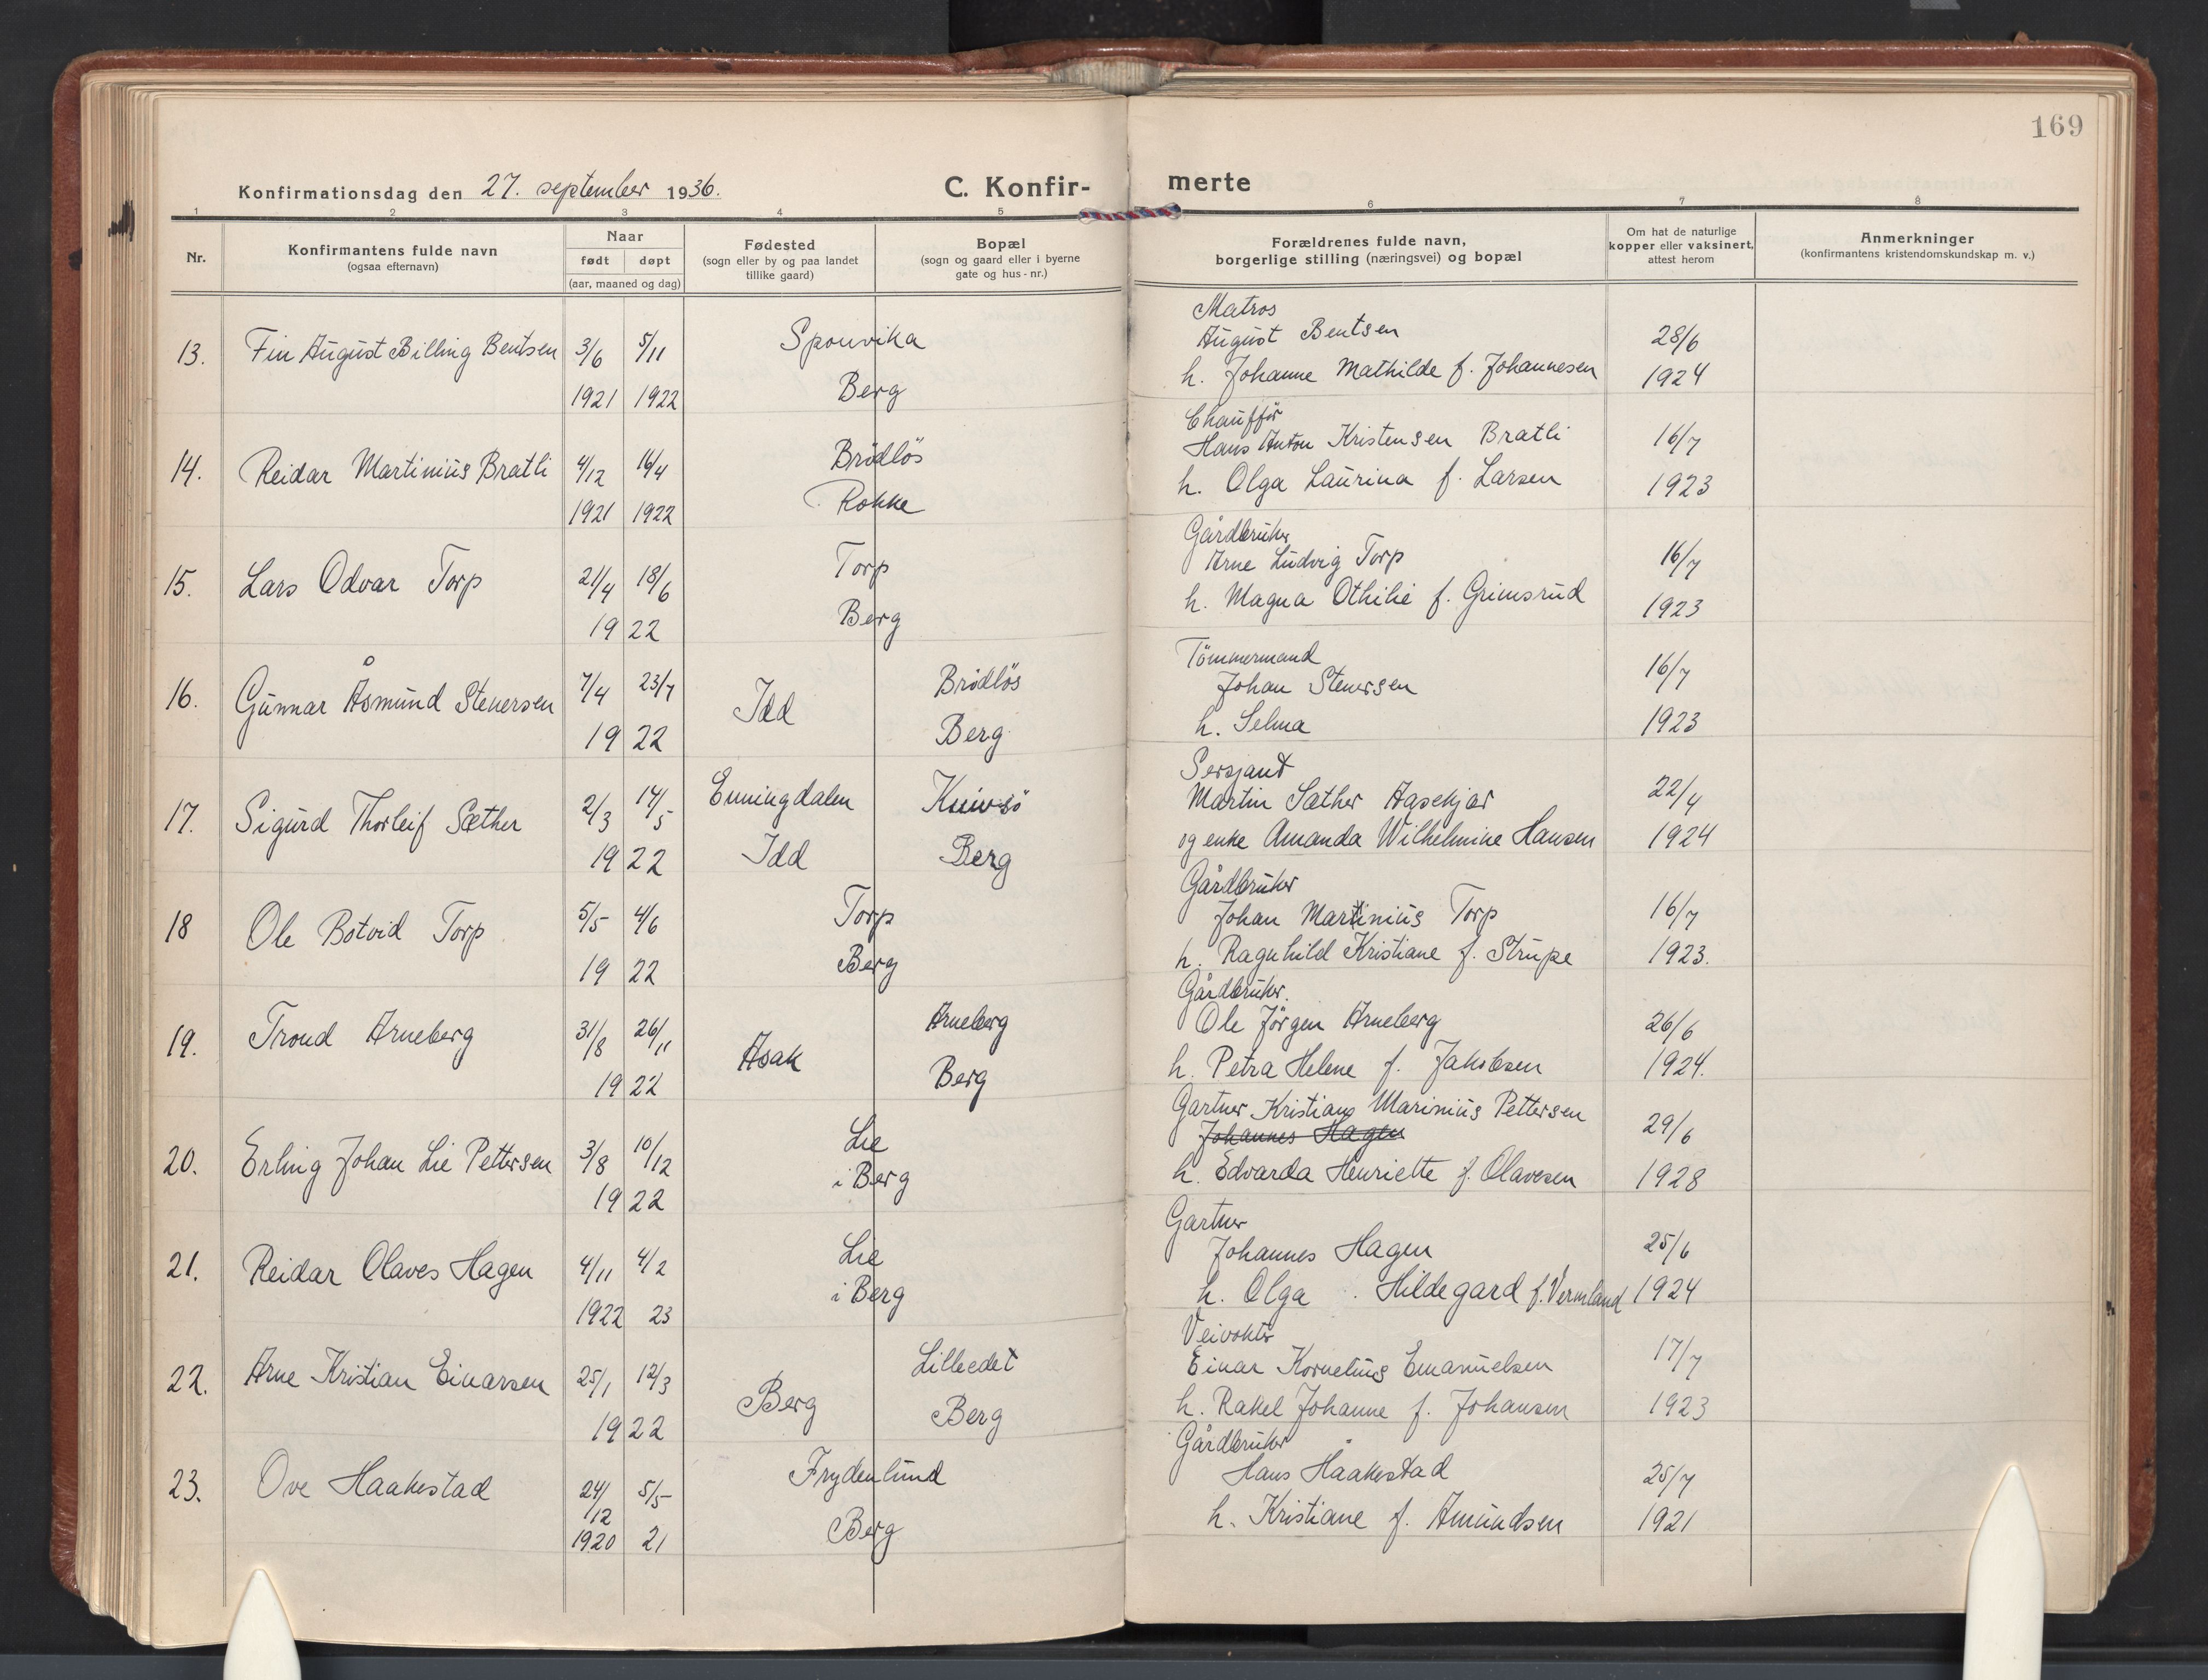 169
Konfirmationsdag den 27. september 1936.
C. Konfirmerte
1 2 3 4 5 6 7 8
Nr.
Konfirmantens fulde navn
(ogsaa efternavn)
Naar
født døpt
(aar, maaned og dag)
Fødested
(sogn eller by og paa landet
tillike gaard)
Bopæl
(sogn og gaard eller i byerne
gate og hus-nr.)
Forældrenes fulde navn,
borgerlige stilling (næringsvei) og bopæl
Om hat de naturlige
kopper eller vaksinert,
attest herom
Anmerkninger
(konfirmantens kristendomskundskap m. v.)
Matros
13. Fin August Billing Bentsen 3/6 5/11 Sponvika August Bentsen 28/6
1921 1922 Berg h. Johanne Mathilde f. Johannesen 1924
Chaufför
14. Reidar Martinius Bratli 4/12 16/4 Brödlös Hans Anton Kristensen Bratli 16/7
1921 1922 Rokke h. Olga Laurina f. Larsen 1923
Gårdbruker
15. Lars Odvar Torp 21/4 18/6 Torp Arne Ludvig Torp 16/7
1922 Berg h. Magna Othilie f. Grimsrud 1923
Tömmermand
16. Gunnar Åsmund Stenersen 7/4 23/7 Idd Brödlös Johan Stenersen 16/7
1922 Berg h. Selma 1923
Sersjant
17. Sigurd Thorleif Sæther 2/3 14/5 Enningdalen Knivsö Martin Sæther Aasekjær 22/4
1922 Idd Berg og enke Amanda Wilhelmine Hansen 1924
Gårdbruker
18 Ole Botvid Torp 5/5 4/6 Torp Johan Martinius Torp 16/7
1922 Berg h. Ragnhild Kristiane f. Strupe 1923.
Gårdbruker.
19. Trond Arneberg 31/8 26/11 Asak Arneberg Ole Jörgen Arneberg 26/6
1922 Berg h. Petra Helene f. Jakobsen 1924.
Gartner Kristians Marinius Pettersen
20. Erling Johan Lie Pettersen 3/8 10/12 Lie Johannes Hagen 29/6
1922 i Berg h. Edvarda Henriette f. Olavesen 1928
Gartner
21. Reidar Olaves Hagen 4/11 4/2 Lie Johannes Hagen 25/6
1922 23 i Berg h. Olga Hildegard f. Vermland 1924
Veivokter
22. Arne Kristian Einarsen 25/1 12/3 Berg Lilleedet Einar Kornelius Emanuelsen 17/7
1922 Berg h. Rakel Johanne f. Johansen 1923
Gårdbruker
23. Ove Haakestad 24/12 5/5 Frydenlund Hans Haakestad 25/7
1920 21 Berg h. Kristiane f. Amundsen 1921